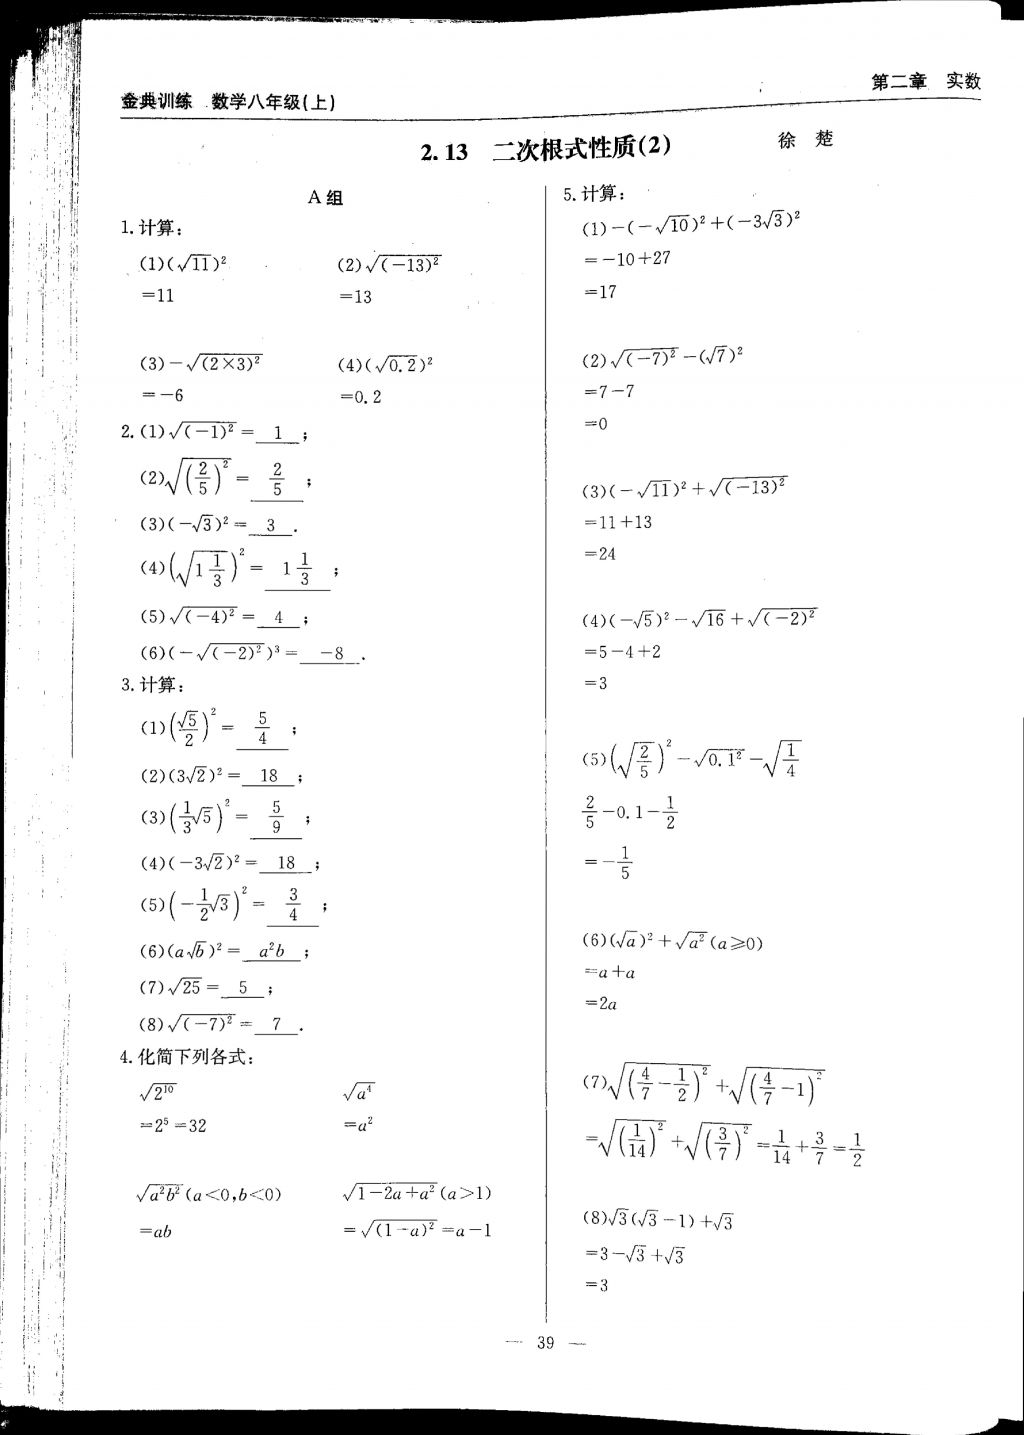 金典训练 数学八年级(上)
第二章 实数
2.13 二次根式性质(2)
徐 楚
A组
1.计算:
(1)(√11)² (2)√(-13)²
=11 =13
(3)-√(2×3)² (4)(√0.2)²
=-6 =0.2
2.(1)√(-1)² = 1 ;
(2)√(2/5)² = 2/5 ;
(3)(-√3)² = 3 .
(4)(√1 1/3)² = 1 1/3 ;
(5)√(-4)² = 4 ;
(6)(-√(-2)²)³ = -8 .
3.计算:
(1)(√5/2)² = 5/4 ;
(2)(3√2)² = 18 ;
(3)(1/3√5)² = 5/9 ;
(4)(-3√2)² = 18 ;
(5)(-1/2√3)² = 3/4 ;
(6)(a√b)² = a²b ;
(7)√25 = 5 ;
(8)√(-7)² = 7 .
4.化简下列各式:
√2¹⁰ √a⁴
=2⁵=32 =a²
√a²b²(a<0,b<0) √1-2a+a²(a>1)
=ab =√(1-a)²=a-1
5.计算:
(1)-(-√10)²+(-3√3)²
=-10+27
=17
(2)√(-7)²-(√7)²
=7-7
=0
(3)(-√11)²+√(-13)²
=11+13
=24
(4)(-√5)²-√16+√(-2)²
=5-4+2
=3
(5)(√2/5)²-√0.1²-√1/4
2/5-0.1-1/2
=-1/5
(6)(√a)²+√a²(a≥0)
=a+a
=2a
(7)√(4/7-1/2)²+√(4/7-1)²
=√(1/14)²+√(3/7)²=1/14+3/7=1/2
(8)√3(√3-1)+√3
=3-√3+√3
=3
— 39 —